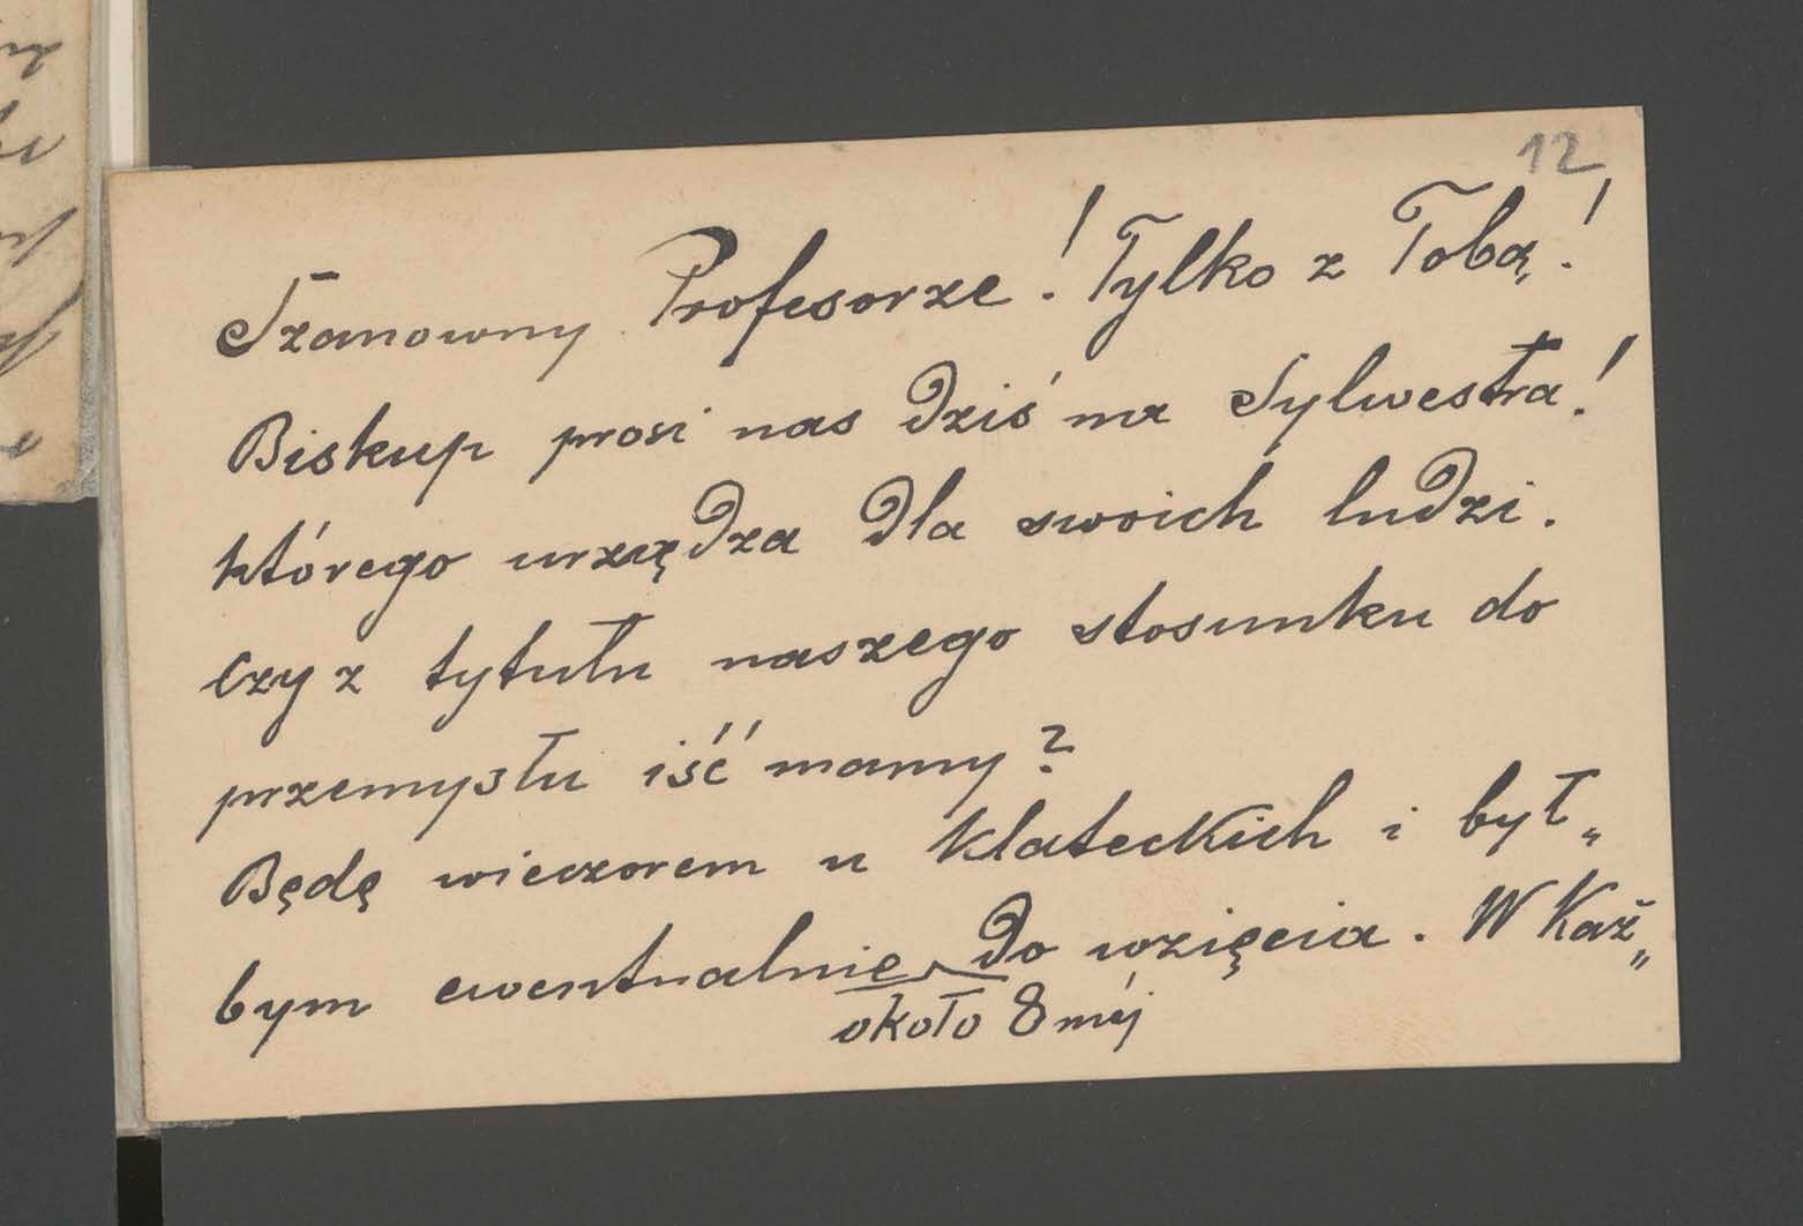 12
Szanowny Profesorze! Tylko z Tobą!
Biskup prosi nas dziś na Sylwestra!
którego urządza dla swoich ludzi.
Czy z tytułu naszego stosunku do
przemysłu iść mamy?
Będę wieczorem u Klateckich i był„
bym ewentualnie do wzięcia. W Każ„
około 8mej